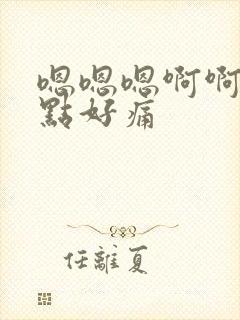 嗯嗯嗯啊啊
點好痛
任離夏